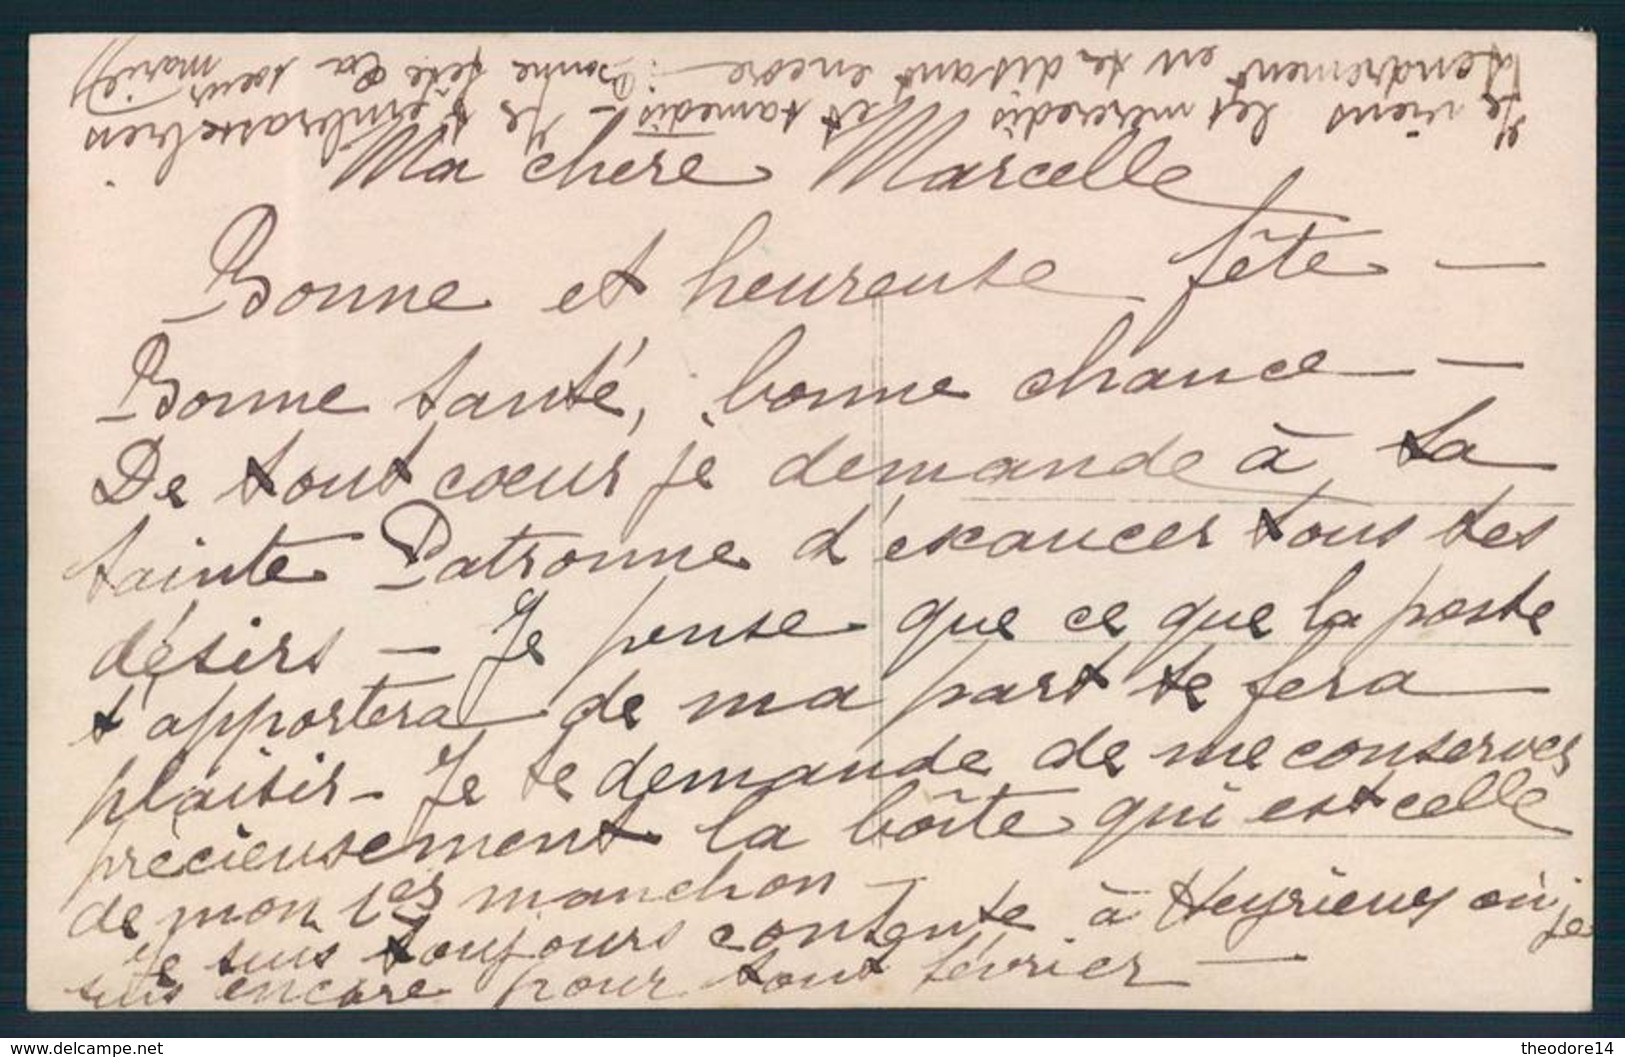 Ma chère Marcelle
Bonne et heureuse fête —
Bonne santé, bonne chance —
De tout cœur je demande à ta
sainte Patronne d'exaucer tous tes
désirs — Je pense que ce que la poste
t'apportera de ma part te fera
plaisir — Je te demande de me conserver
précieusement la boîte qui est celle
de mon 1er manchon —
Je suis toujours contente à Heyrieux où je
suis encore pour tout février —
Je viens les mercredis et samedis — Je t'embrasse bien
tendrement en te disant encore : Bonne fête Ta sœur
marie)
www.delcampe.net
theodore14